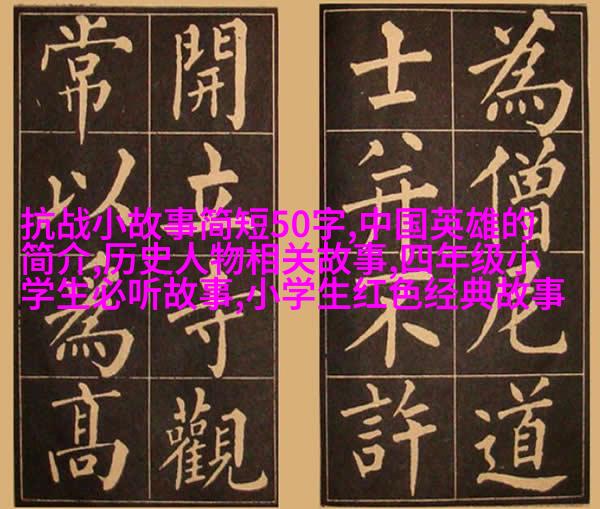 為僧尼道
士并不許
開立寺觀
常以為髙
抗战小故事简短50字,中国英雄的
简介,历史人物相关故事,四年级小
学生必听故事,小学生红色经典故事